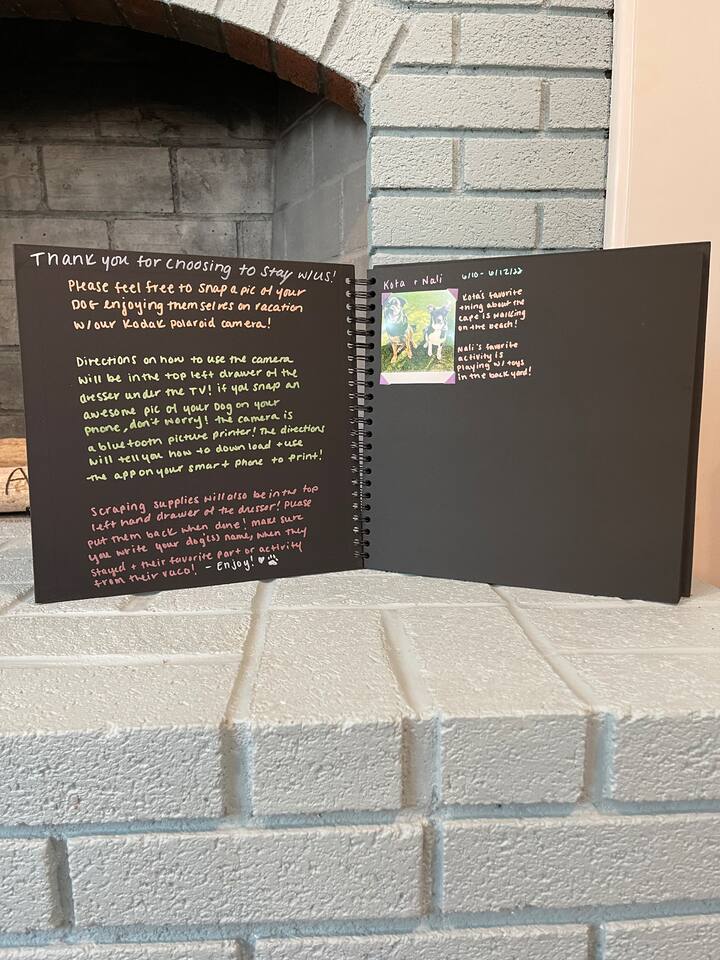 Thank you for choosing to stay w/us!
Please feel free to snap a pic of your
DOG enjoying themselves on vacation
w/our Kodak polaroid camera!
Directions on how to use the camera
will be in the top left drawer of the
dresser under the TV! if you snap an
awesome pic of your Dog on your
phone, don't worry! the camera is
a bluetooth picture printer! The directions
will tell you how to download + use
the app on your smart phone to print!
Scraping supplies will also be in the top
left hand drawer of the dresser! Please
put them back when done! make sure
you write your dog(s) name, when they
stayed + their favorite part or activity
from their vaca! - Enjoy!
Kota + Nali 6/10 - 6/12/22
Kota's favorite
thing about the
cape is walking
on the beach!
Nali's favorite
activity is
playing w/ toys
in the back yard!
A